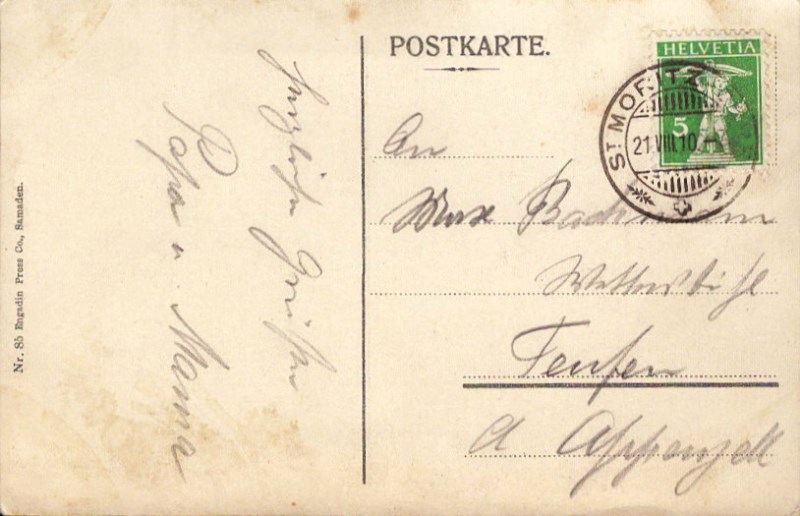 POSTKARTE.
HELVETIA
5
ST MORITZ
21.VIII.10.
An
Max Bachmann
Teufen
Ct. Appenzell
Herzliche Grüsse
Papa u. Mama
Nr. 85 Engadin Press Co., Samaden.